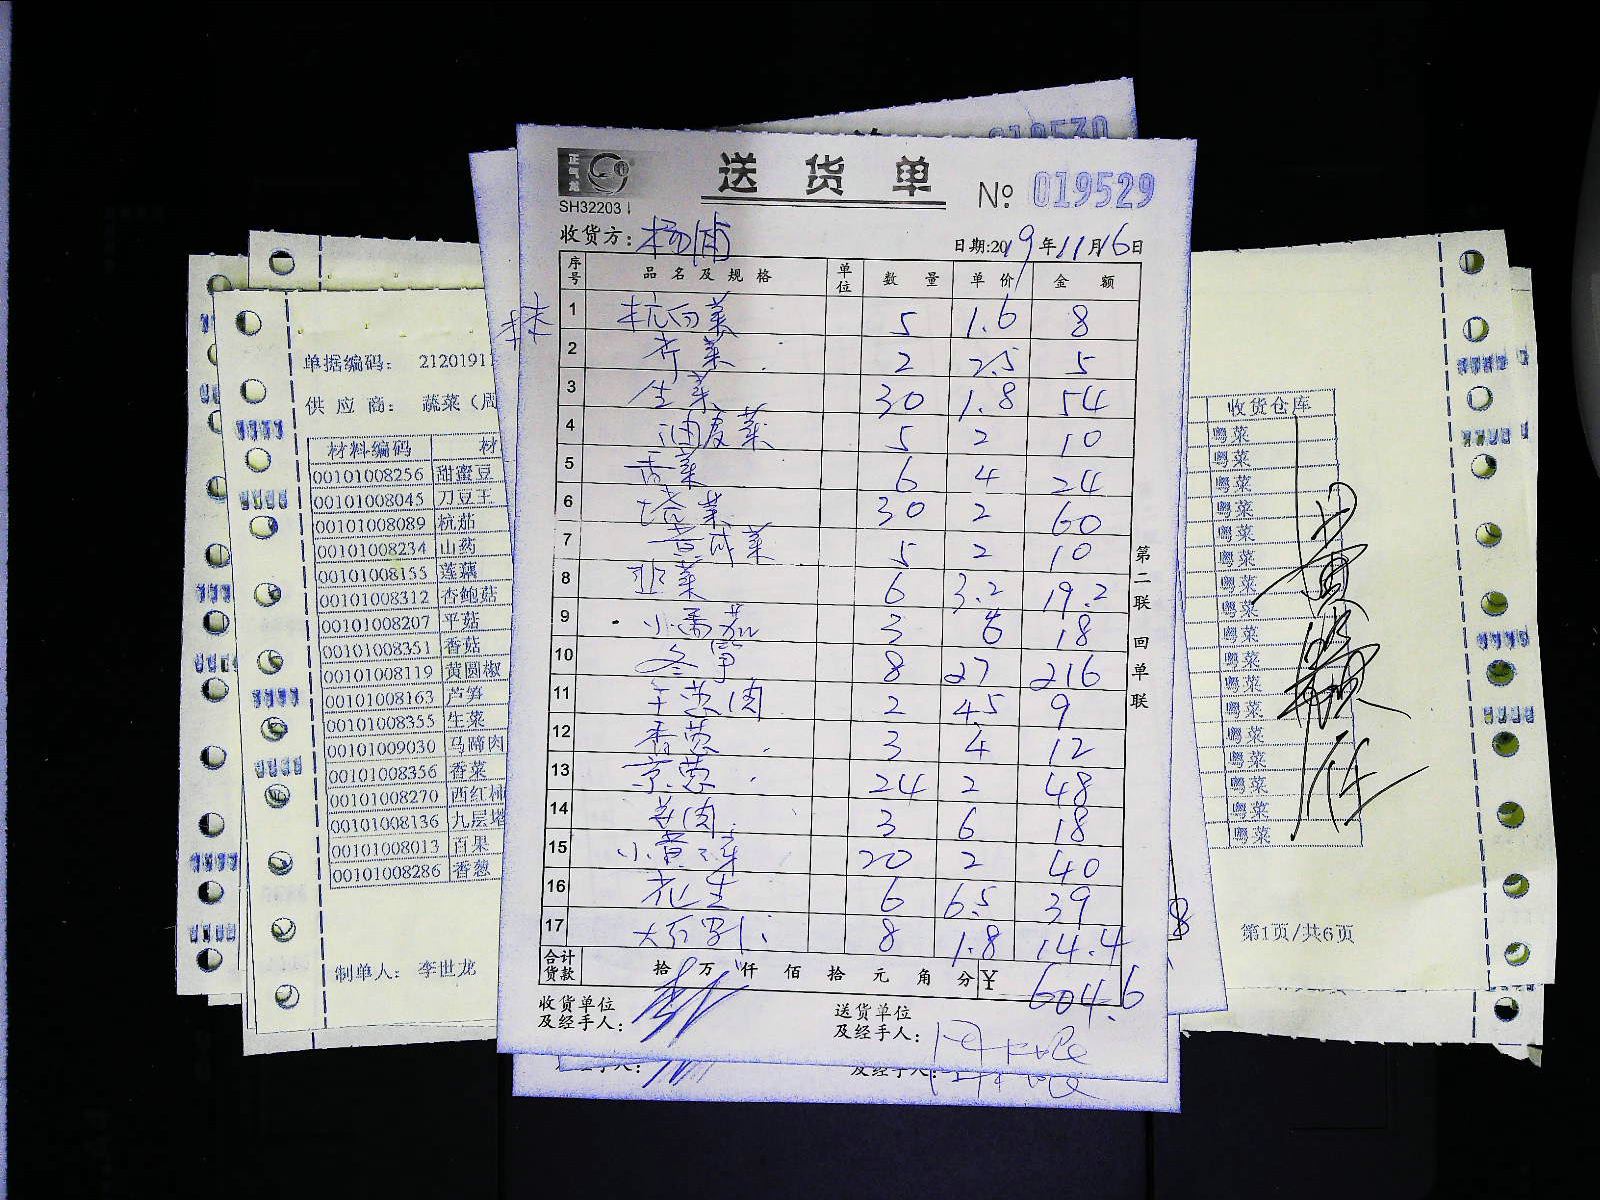 019530
正气龙
送货单
№ 019529
SH32203
收货方：杨浦
日期:2019年11月16日
序号 品名及规格 单位 数量 单价 金额
1 杭白菜 5 1.6 8
2 芹菜 2 2.5 5
3 生菜 30 1.8 54
4 油麦菜 5 2 10
5 香菜 6 4 24
6 塔菜 30 2 60
7 5 2 10
8 韭菜 6 3.2 19.2
9 小番茄 3 6 18
10 冬笋 8 27 216
11 2 4.5 9
12 香葱 3 4 12
13 京葱 24 2 48
14 姜肉 3 6 18
15 小黄 20 2 40
16 花生 6 6.5 39
17 8 1.8 14.4
合计货款 拾 万 仟 佰 拾 元 角 分 ¥ 604.6
收货单位及经手人：
送货单位及经手人：
第二联 回单联
单据编码： 2120191
供应商： 蔬菜（周
材料编码 材
00101008256 甜蜜豆
00101008045 刀豆王
00101008089 杭茄
00101008234 山药
00101008155 莲藕
00101008312 杏鲍菇
00101008207 平菇
00101008351 香菇
00101008119 黄圆椒
00101008163 芦笋
00101008355 生菜
00101009030 马蹄肉
00101008356 香菜
00101008270 西红柿
00101008136 九层塔
00101008013 百果
00101008286 香葱
制单人： 李世龙
收货仓库
粤菜
粤菜
粤菜
粤菜
粤菜
粤菜
粤菜
粤菜
粤菜
粤菜
粤菜
粤菜
粤菜
粤菜
粤菜
粤菜
粤菜
8
第1页/共6页